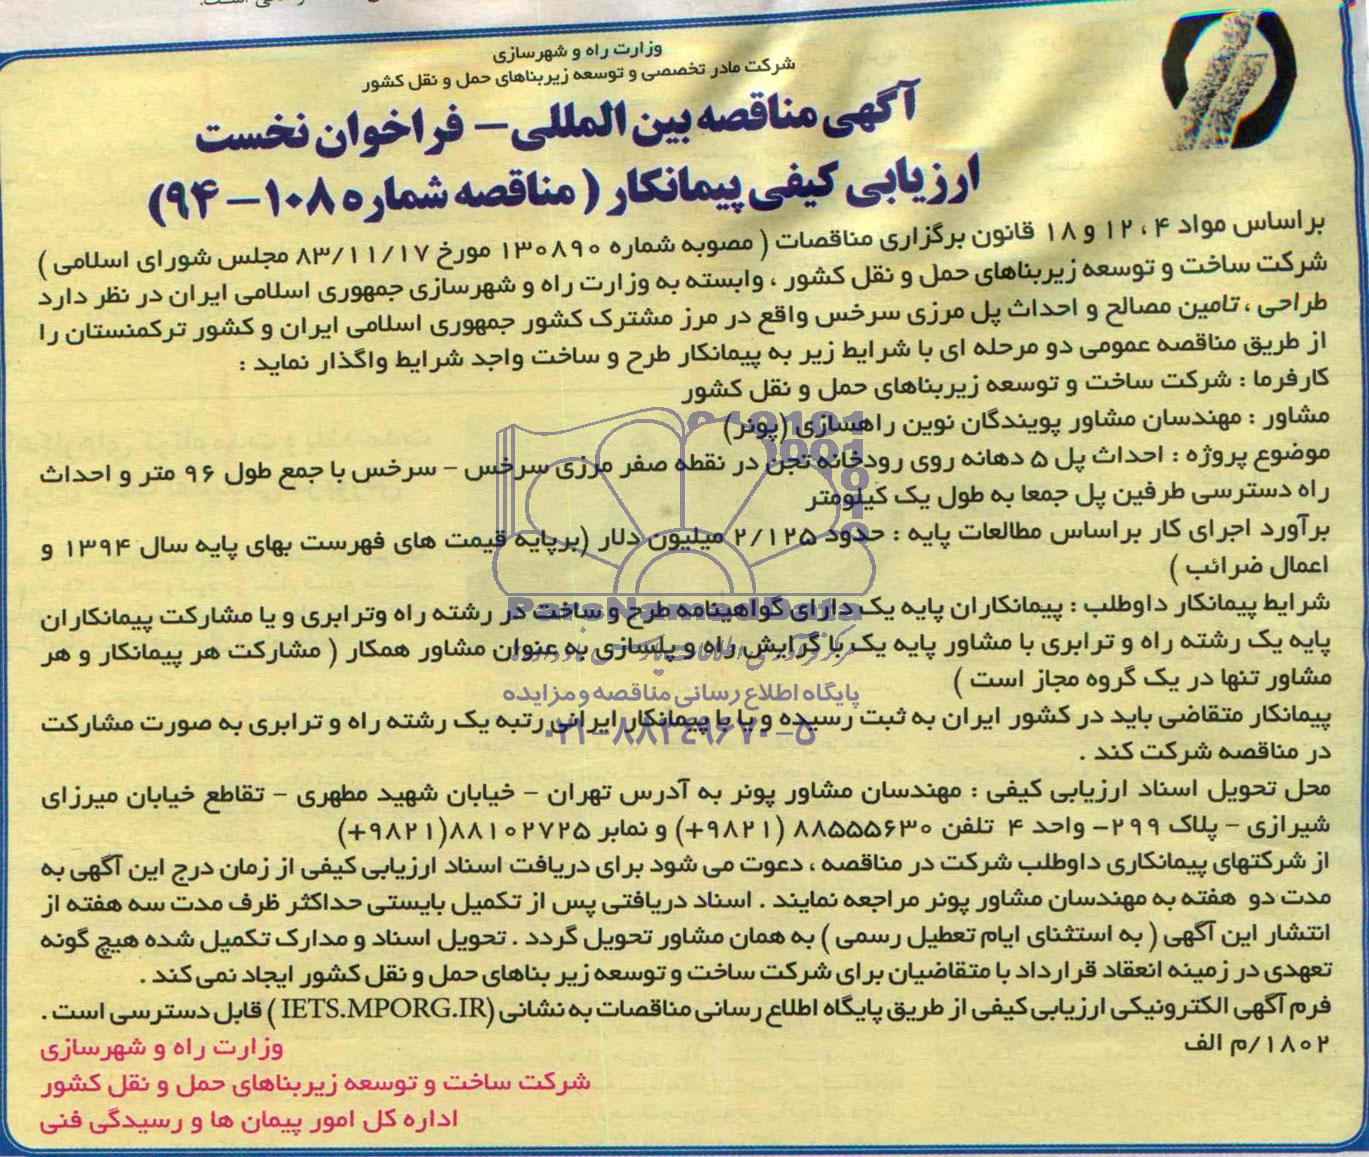 وزارت راه و شهرسازی
شرکت مادر تخصصی و توسعه زیربناهای حمل و نقل کشور
آگهی مناقصه بین المللی – فراخوان نخست
ارزیابی کیفی پیمانکار ( مناقصه شماره ۱۰۸ – ۹۴)
براساس مواد ۴ ، ۱۲ و ۱۸ قانون برگزاری مناقصات ( مصوبه شماره ۱۳۰۸۹۰ مورخ ۸۳/۱۱/۱۷ مجلس شورای اسلامی )
شرکت ساخت و توسعه زیربناهای حمل و نقل کشور ، وابسته به وزارت راه و شهرسازی جمهوری اسلامی ایران در نظر دارد
طراحی ، تامین مصالح و احداث پل مرزی سرخس واقع در مرز مشترک کشور جمهوری اسلامی ایران و کشور ترکمنستان را
از طریق مناقصه عمومی دو مرحله ای با شرایط زیر به پیمانکار طرح و ساخت واجد شرایط واگذار نماید :
کارفرما : شرکت ساخت و توسعه زیربناهای حمل و نقل کشور
مشاور : مهندسان مشاور پویندگان نوین راهسازی (پونر)
موضوع پروژه : احداث پل ۵ دهانه روی رودخانه تجن در نقطه صفر مرزی سرخس – سرخس با جمع طول ۹۶ متر و احداث
راه دسترسی طرفین پل جمعا به طول یک کیلومتر
برآورد اجرای کار براساس مطالعات پایه : حدود ۲/۱۲۵ میلیون دلار (برپایه قیمت های فهرست بهای پایه سال ۱۳۹۴ و
اعمال ضرائب )
شرایط پیمانکار داوطلب : پیمانکاران پایه یک دارای گواهینامه طرح و ساخت در رشته راه وترابری و یا مشارکت پیمانکاران
پایه یک رشته راه و ترابری با مشاور پایه یک با گرایش راه و پلسازی به عنوان مشاور همکار ( مشارکت هر پیمانکار و هر
مشاور تنها در یک گروه مجاز است )
پایگاه اطلاع رسانی مناقصه و مزایده
پیمانکار متقاضی باید در کشور ایران به ثبت رسیده و یا با پیمانکار ایرانی رتبه یک رشته راه و ترابری به صورت مشارکت
۰۲۱-۸۸۳۴۹۶۷۰-۵
در مناقصه شرکت کند .
محل تحویل اسناد ارزیابی کیفی : مهندسان مشاور پونر به آدرس تهران – خیابان شهید مطهری – تقاطع خیابان میرزای
شیرازی – پلاک ۲۹۹– واحد ۴ تلفن ۸۸۵۵۵۶۳۰ (۹۸۲۱+) و نمابر ۸۸۱۰۲۷۲۵(۹۸۲۱+)
از شرکتهای پیمانکاری داوطلب شرکت در مناقصه ، دعوت می شود برای دریافت اسناد ارزیابی کیفی از زمان درج این آگهی به
مدت دو هفته به مهندسان مشاور پونر مراجعه نمایند . اسناد دریافتی پس از تکمیل بایستی حداکثر ظرف مدت سه هفته از
انتشار این آگهی ( به استثنای ایام تعطیل رسمی ) به همان مشاور تحویل گردد . تحویل اسناد و مدارک تکمیل شده هیچ گونه
تعهدی در زمینه انعقاد قرارداد با متقاضیان برای شرکت ساخت و توسعه زیر بناهای حمل و نقل کشور ایجاد نمی کند .
فرم آگهی الکترونیکی ارزیابی کیفی از طریق پایگاه اطلاع رسانی مناقصات به نشانی (IETS.MPORG.IR ) قابل دسترسی است .
۱۸۰۲/م الف
وزارت راه و شهرسازی
شرکت ساخت و توسعه زیربناهای حمل و نقل کشور
اداره کل امور پیمان ها و رسیدگی فنی